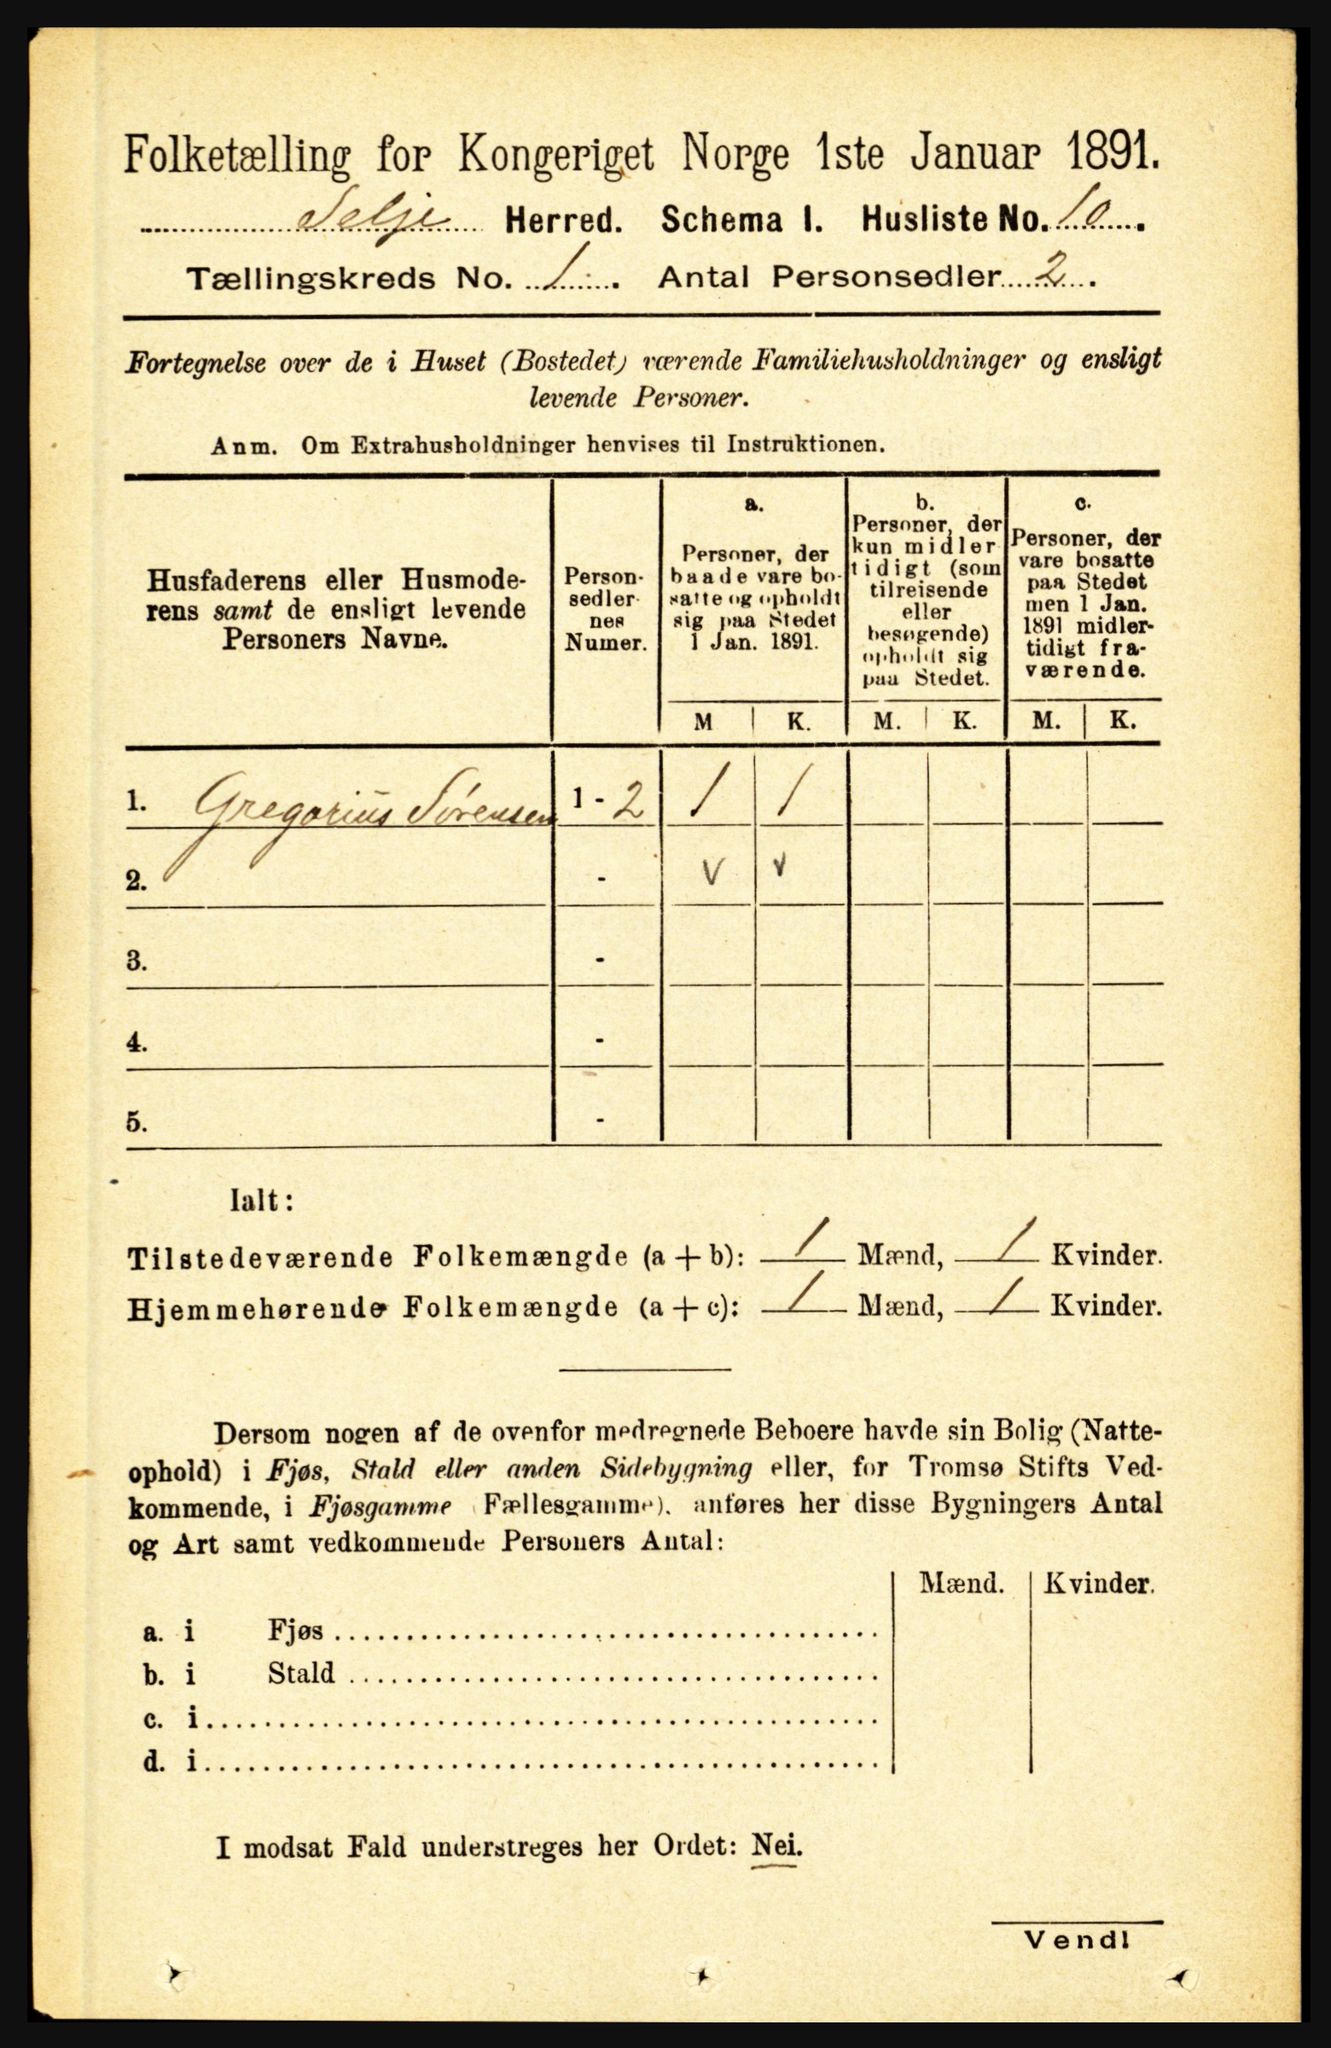 Folketælling for Kongeriget Norge 1ste Januar 1891.
Selje Herred. Schema I. Husliste No. 10.
Tællingskreds No. 1. Antal Personsedler 2.
Fortegnelse over de i Huset (Bostedet) værende Familiehusholdninger og ensligt
levende Personer.
Anm. Om Extrahusholdninger henvises til Instruktionen.
Husfaderens eller Husmode-
rens samt de ensligt levende
Personers Navne.
Person-
sedler-
nes
Numer.
a.
Personer, der
baade vare bo-
satte og opholdt
sig paa Stedet
1 Jan. 1891.
b.
Personer, der
kun midler
tidigt (som
tilreisende
eller
besøgende)
opholdt sig
paa Stedet.
c.
Personer, der
vare bosatte
paa Stedet
men 1 Jan.
1891 midler-
tidigt fra-
værende.
M K. M. K. M. K.
1. Gregorius Sørensen 1 - 2 1 1
2. - v v
3. -
4. -
5. -
Ialt:
Tilstedeværende Folkemængde (a + b): 1 Mænd, 1 Kvinder.
Hjemmehørende Folkemængde (a + c): 1 Mænd, 1 Kvinder.
Dersom nogen af de ovenfor medregnede Beboere havde sin Bolig (Natte-
ophold) i Fjøs, Stald eller anden Sidebygning eller, for Tromsø Stifts Ved-
kommende, i Fjøsgamme Fællesgamme). anføres her disse Bygningers Antal
og Art samt vedkommende Personers Antal:
Mænd. Kvinder.
a. i Fjøs
b. i Stald
c. i
d. i
I modsat Fald understreges her Ordet: Nei.
Vend!